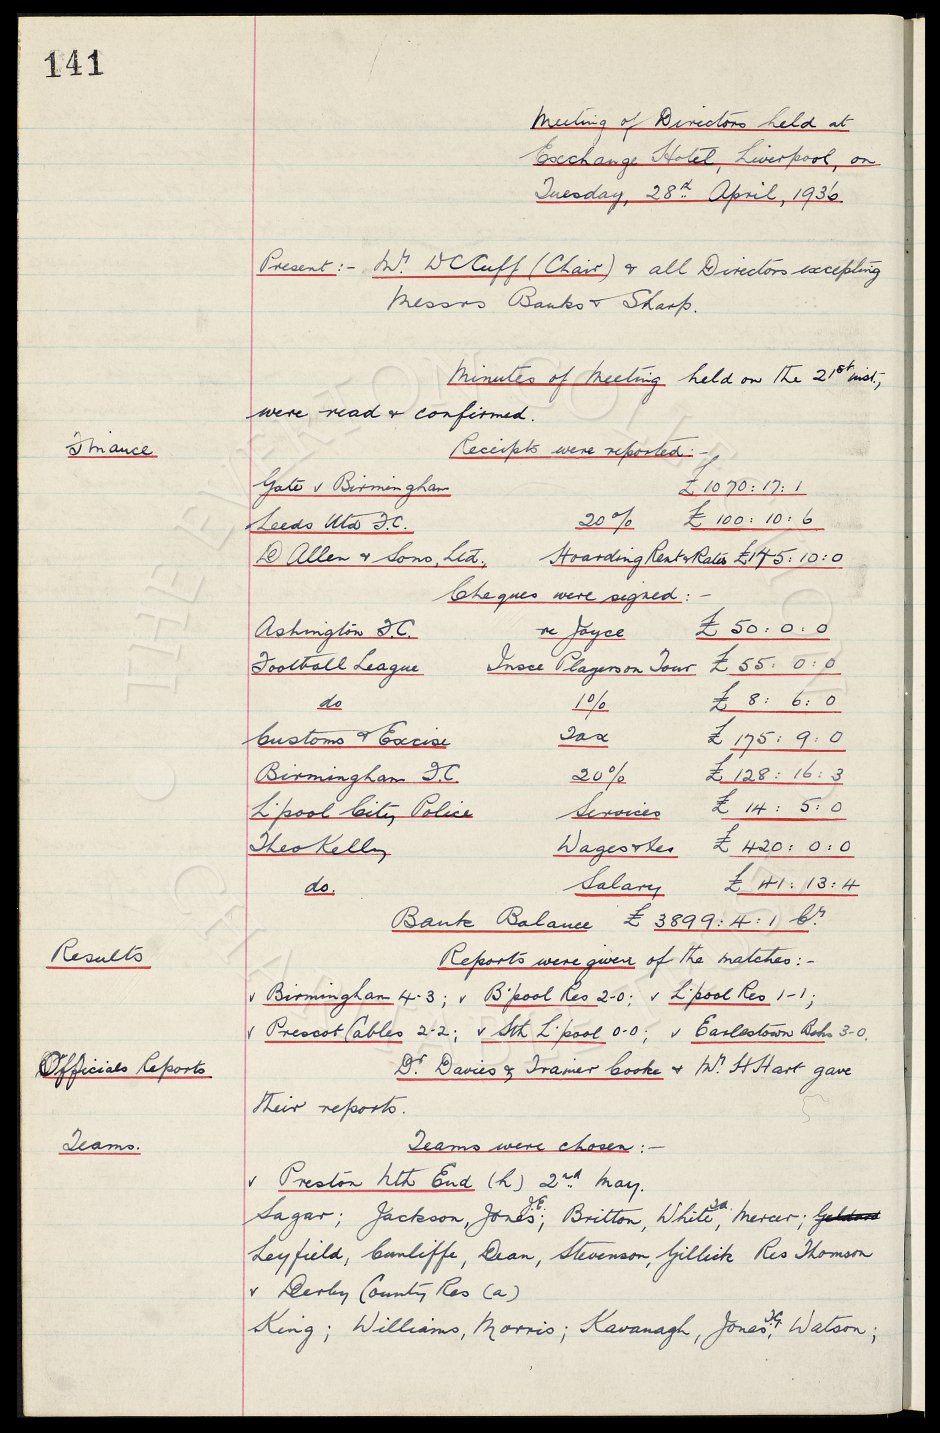 141
Meeting of Directors held at
Exchange Hotel, Liverpool, on
Tuesday, 28th April, 1936
Present:- Mr. W C Cuff (Chair) & all Directors excepting
Messrs Banks & Sharp.
Minutes of Meeting held on the 21st inst.,
were read & confirmed.
Finance Receipts were reported:-
Gate v Birmingham £1070:17:1
Leeds Utd F.C. 20% £100:10:6
D Allen & Sons, Ltd., Hoarding Rent & Rates £145:10:0
Cheques were signed:-
Ashington F.C. re Joyce £50:0:0
Football League Insce Players on Tour £55:0:0
do 1% £8:6:0
Customs & Excise Tax £175:9:0
Birmingham F.C. 20% £128:16:3
L'pool City Police Services £14:5:0
Theo Kelly Wages &tes £420:0:0
do. Salary £41:13:4
Bank Balance £3899:4:1 Cr.
Results Reports were given of the matches:-
v Birmingham 4-3; v B'pool Res 2-0; v L'pool Res 1-1;
v Prescot Cables 2-2; v Sth L'pool 0-0; v Earlestown Bohs 3-0.
Officials Reports Dr. Davies & Trainer Cooke & Mr. H Hart gave
their reports.
Teams. Teams were chosen:-
v Preston Nth End (h) 2nd May.
Sagar; Jackson, Jones J.E.; Britton, White T.A., Mercer; Geldard
Leyfield, Cunliffe, Dean, Stevenson, Gillick Res Thomson
v Derby County Res (a)
King; Williams, Morris; Kavanagh, Jones T.G., Watson;
THE EVERTON COLLECTION
CHARITABLE TRUST